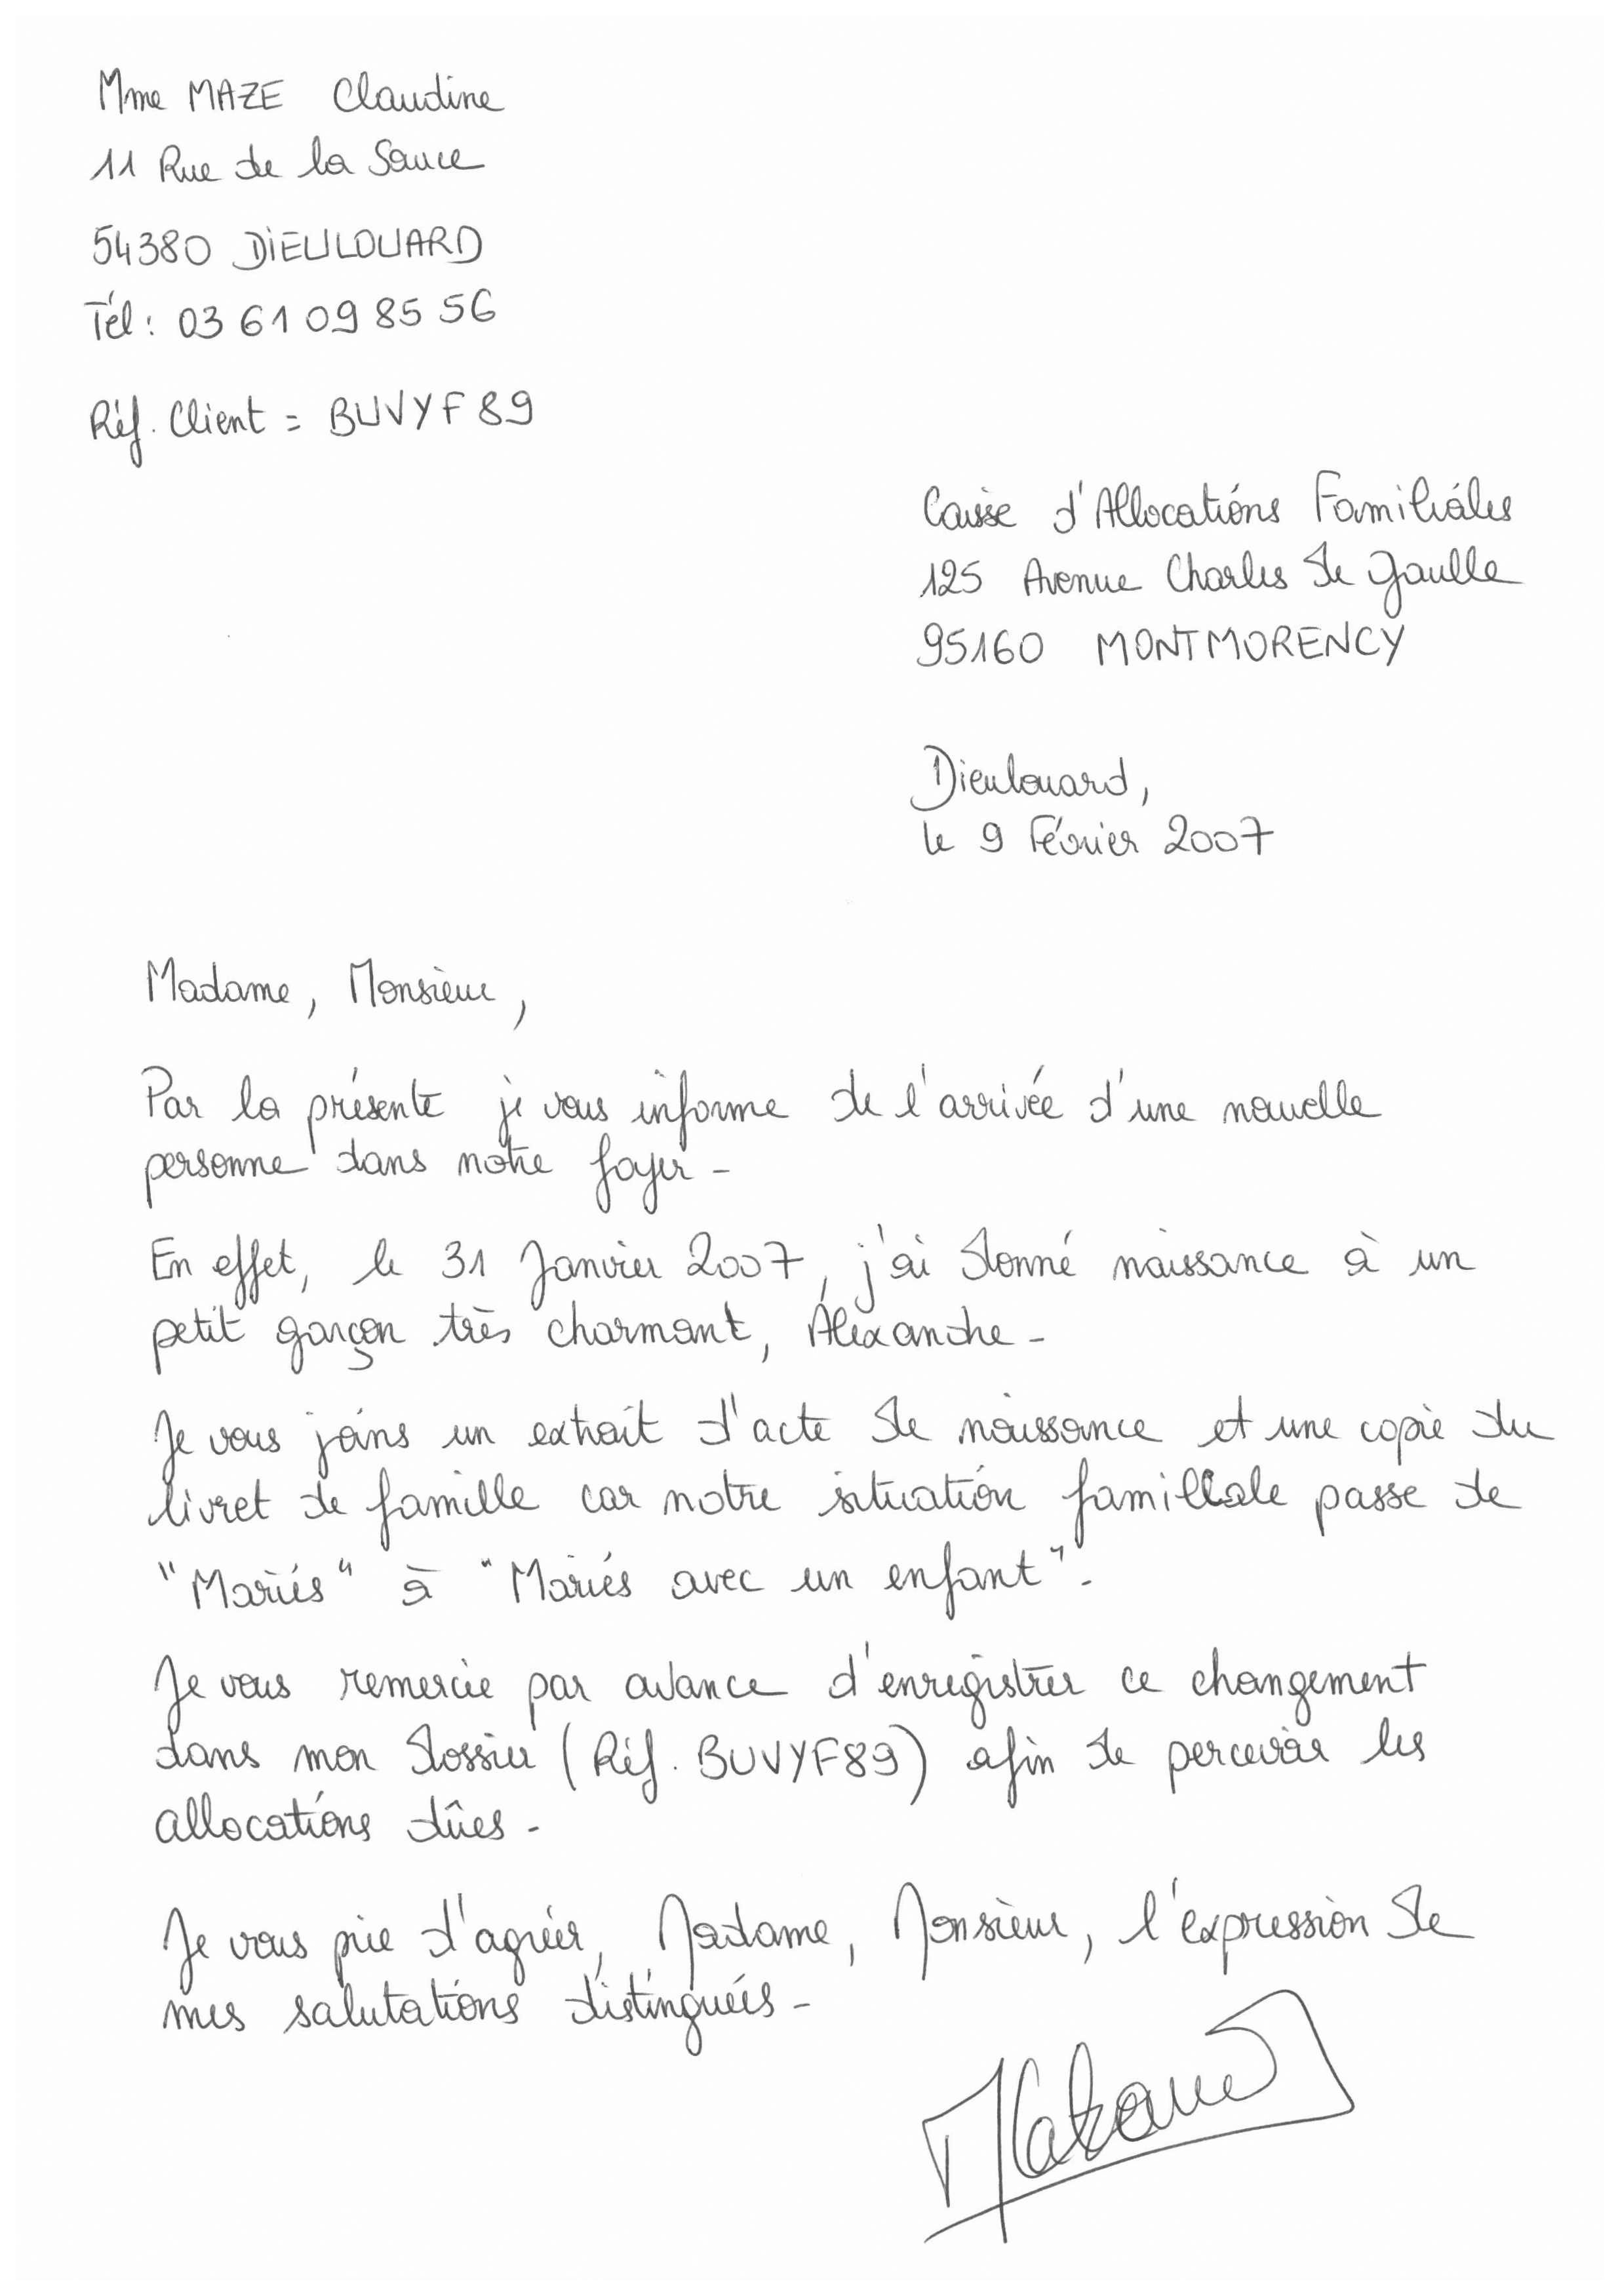 Mme MAZE Claudine
11 Rue de la Sauce
54380 DiEULOUARD
Tél : 03 61 09 85 56
Réf. Client = BUVYF89
Caisse d'Allocations Familiales
125 Avenue Charles de Gaulle
95160 MONTMORENCY
Dieulouard,
le 9 Février 2007
Madame, Monsieur,
Par la présente je vous informe de l'arrivée d'une nouvelle
personne dans notre foyer -
En effet, le 31 Janvier 2007, j'ai donné naissance à un
petit garçon très charmant, Alexandre -
Je vous joins un extrait d'acte de naissance et une copie du
livret de famille car notre situation familiale passe de
"Mariés" à "Mariés avec un enfant".
Je vous remercie par avance d'enregistrer ce changement
dans mon dossier (Réf. BUVYF89) afin de percevoir les
allocations dûes -
Je vous prie d'agréer, Madame, Monsieur, l'expression de
mes salutations distinguées -